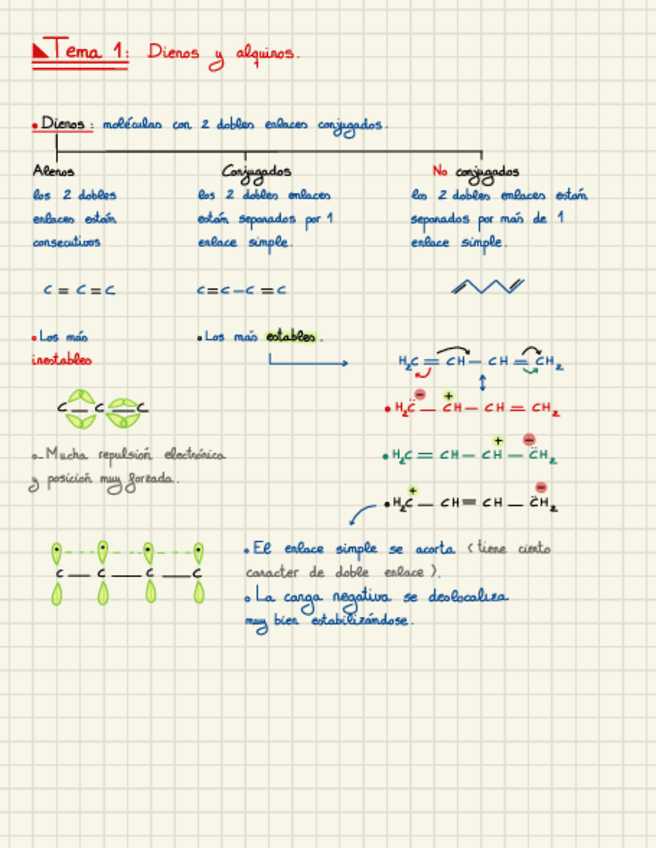 Tema 1: Dienos y alquinos.
• Dienos: moléculas con 2 dobles enlaces conjugados.
Alenos
los 2 dobles
enlaces están
consecutivos
C = C = C
• Los más
inestables
C — C = C
o- Mucha repulsión electrónica
y posición muy forzada.
Conjugados
los 2 dobles enlaces
están separados por 1
enlace simple.
C=C-C=C
• Los más estables.
No conjugados
los 2 dobles enlaces están
separados por más de 1
enlace simple.
H₂C = CH — CH = CH₂
• H₂C̈ — CH — CH = CH₂
• H₂C = CH — CH — C̈H₂
• H₂C — CH = CH — C̈H₂
C — C — C — C
• El enlace simple se acorta (tiene cierto
caracter de doble enlace).
• La carga negativa se deslocaliza
muy bien estabilizándose.